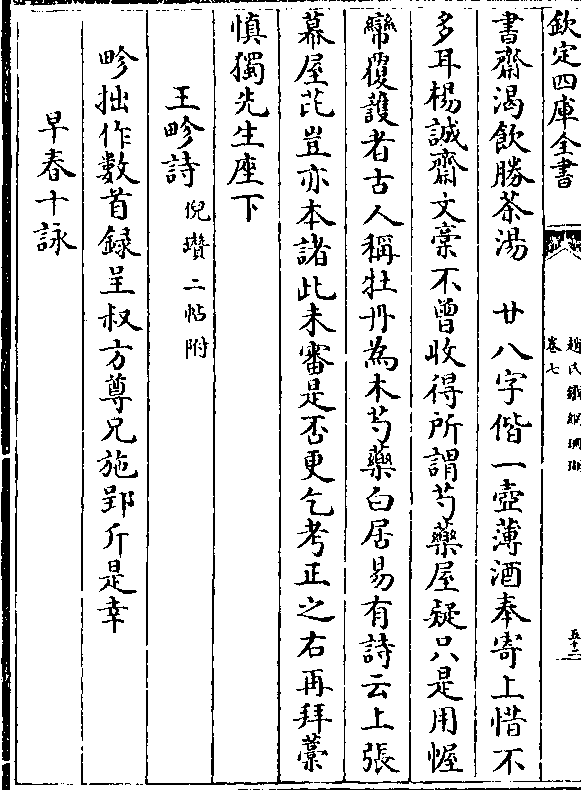 欽定四庫全書
趙氏鐵網珊瑚
卷七
五十二
書齋渴飲勝茶湯　廿八字偕一壺薄酒奉寄上惜不
多耳楊誠齋文稾不曾收得所謂芍藥屋疑只是用幄
帟覆䕶者古人稱牡丹為木芍藥白居易有詩云上張
幕屋芘豈亦本諸此未審是否更乞考正之右再拜藁
慎獨先生座下
王畛詩 倪瓚二帖附
畛拙作數首録呈叔方尊兄施郢斤是幸
早春十詠